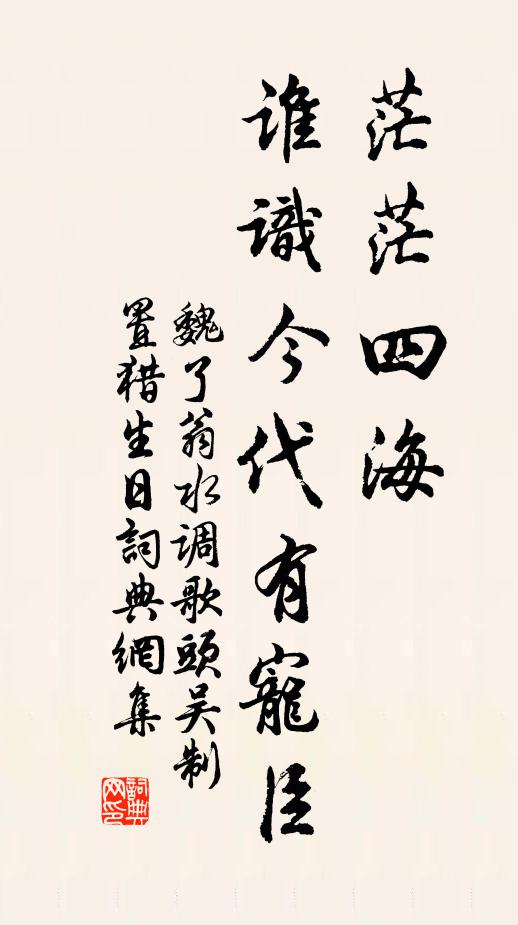 茫茫四海
谁識今代有寵臣
魏了翁水调歌頭吴制
置猎生日詞典網集
詞典網印